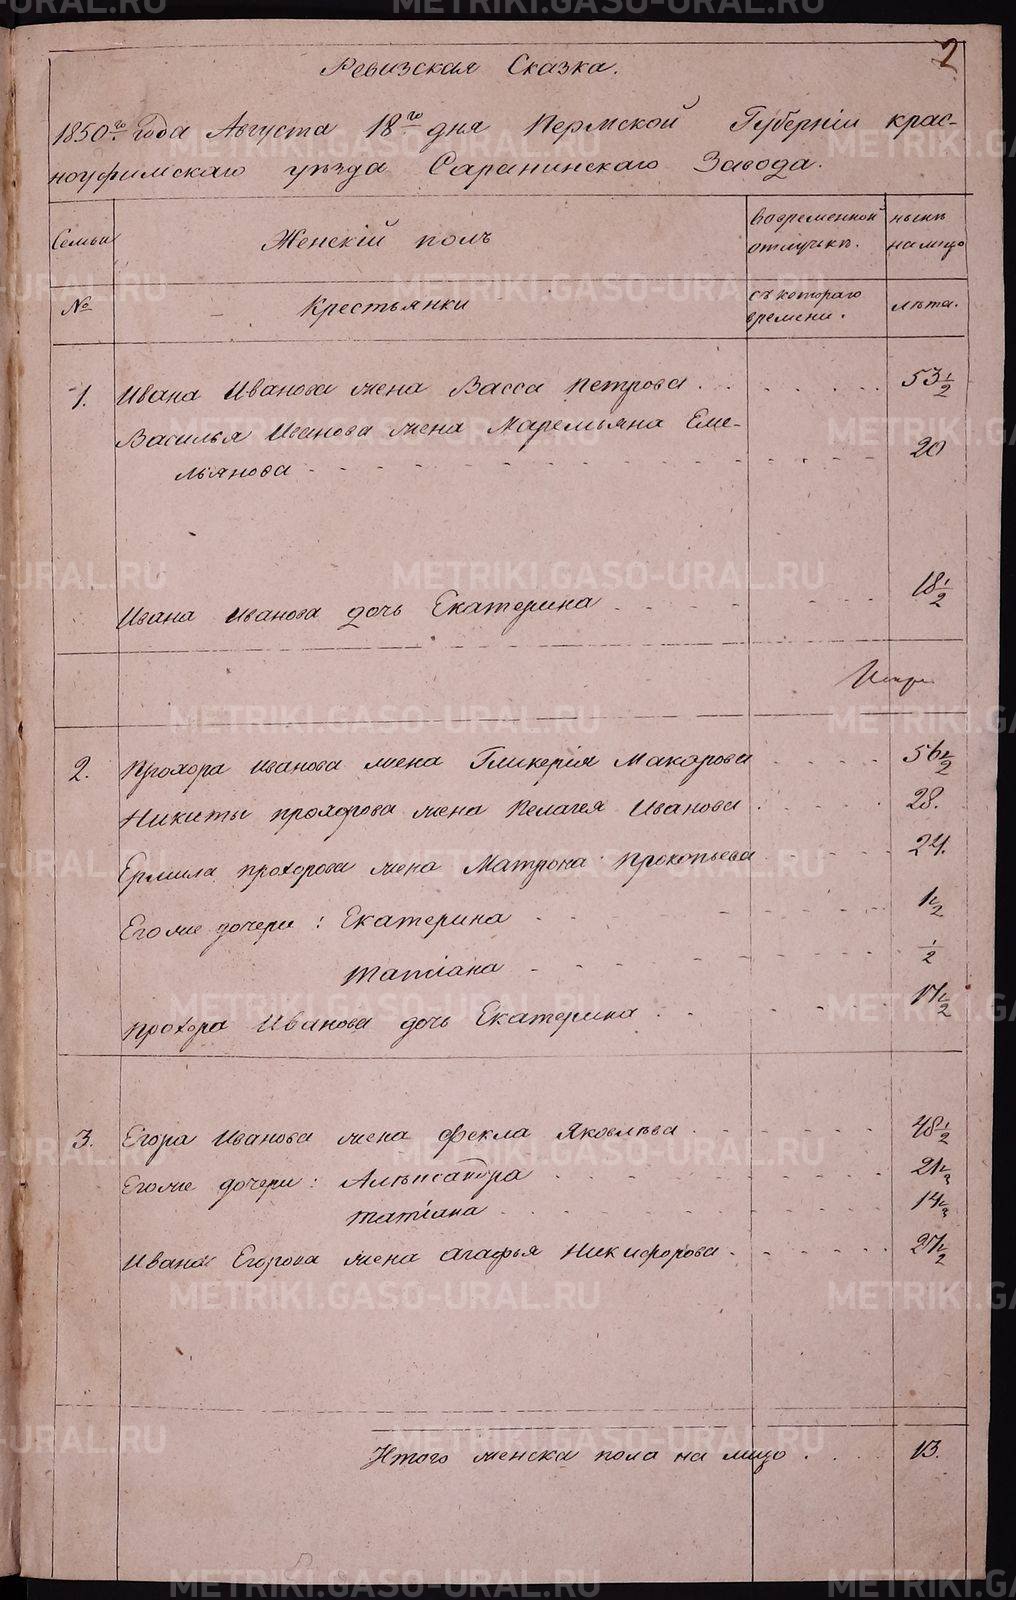 2
Ревизская Сказка.
1850го Года Августа 18го дня Пермской Губернiи крас-
ноуфимскаго уѣзда Саранинскаго Завода.
Семьи
Женскiй полъ
вовременной
отлучкѣ.
нынѣ
налицо
№
Крестьянки
съ котораго
времени.
лѣта.
1. Ивана Иванова жена Васса Петрова . . . . . . . 53 1/2
Василья Иванова жена Маремьяна Еме-
льянова - - - - - - - - - - - - 20
Ивана Иванова дочь Екатерина - - - - - - - 18 1/2
2. Прохора Иванова жена Гликерiя Макарова . . . . 56 1/2
Никиты прохорова жена Пелагея Иванова . . . . 28.
Ермила прохорова жена Матрона Прокопьева . . . . 24.
Егоже дочери : Екатерина - - - - - - - - 1 1/2
Татiана - - - - - - - - 1/2
прохора Иванова дочь Екатерина . . . . . . 17 1/2
3. Егора Иванова жена фекла Яковлѣва . . . . . . 48 1/2
Егоже дочери : Алѣксандра . . . . . . . . 21 1/2
татiана . . . . . . . . 14 1/2
Ивана Егорова жена агафья Никифорова . . . . . 27 1/2
Итого женска пола на лицо . . . . 13.
METRIKI.GASO-URAL.RU